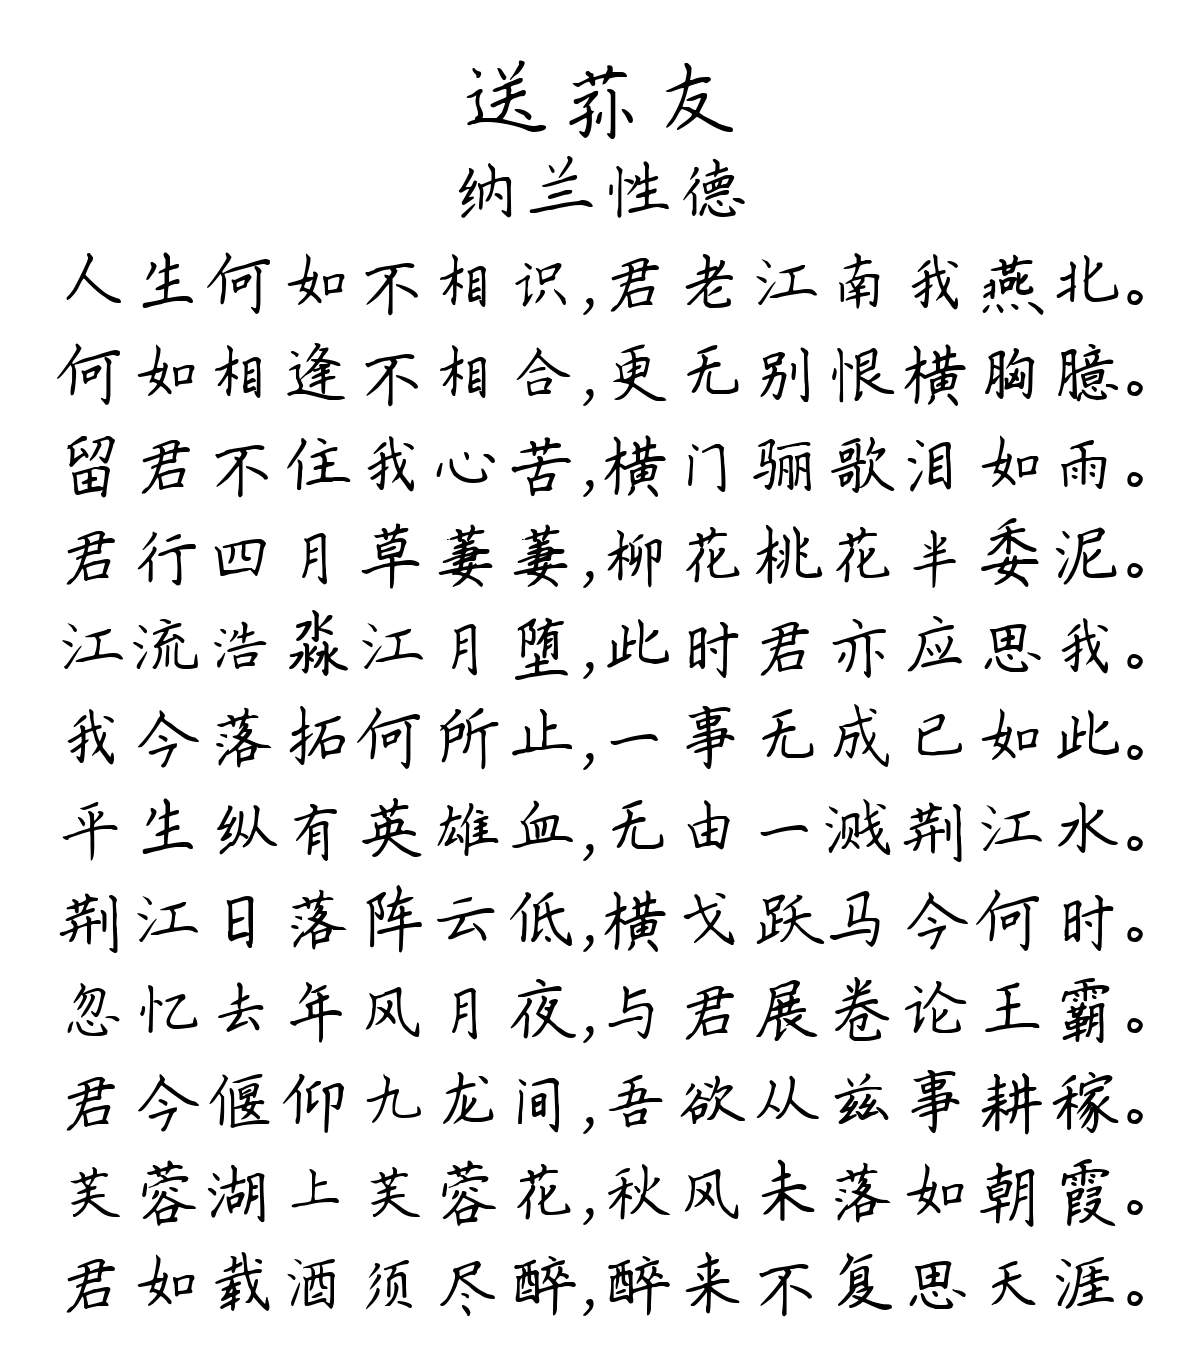 送荪友
纳兰性德
人生何如不相识,君老江南我燕北。
何如相逢不相合,更无别恨横胸臆。
留君不住我心苦,横门骊歌泪如雨。
君行四月草萋萋,柳花桃花半委泥。
江流浩淼江月堕,此时君亦应思我。
我今落拓何所止,一事无成已如此。
平生纵有英雄血,无由一溅荆江水。
荆江日落阵云低,横戈跃马今何时。
忽忆去年风月夜,与君展卷论王霸。
君今偃仰九龙间,吾欲从兹事耕稼。
芙蓉湖上芙蓉花,秋风未落如朝霞。
君如载酒须尽醉,醉来不复思天涯。